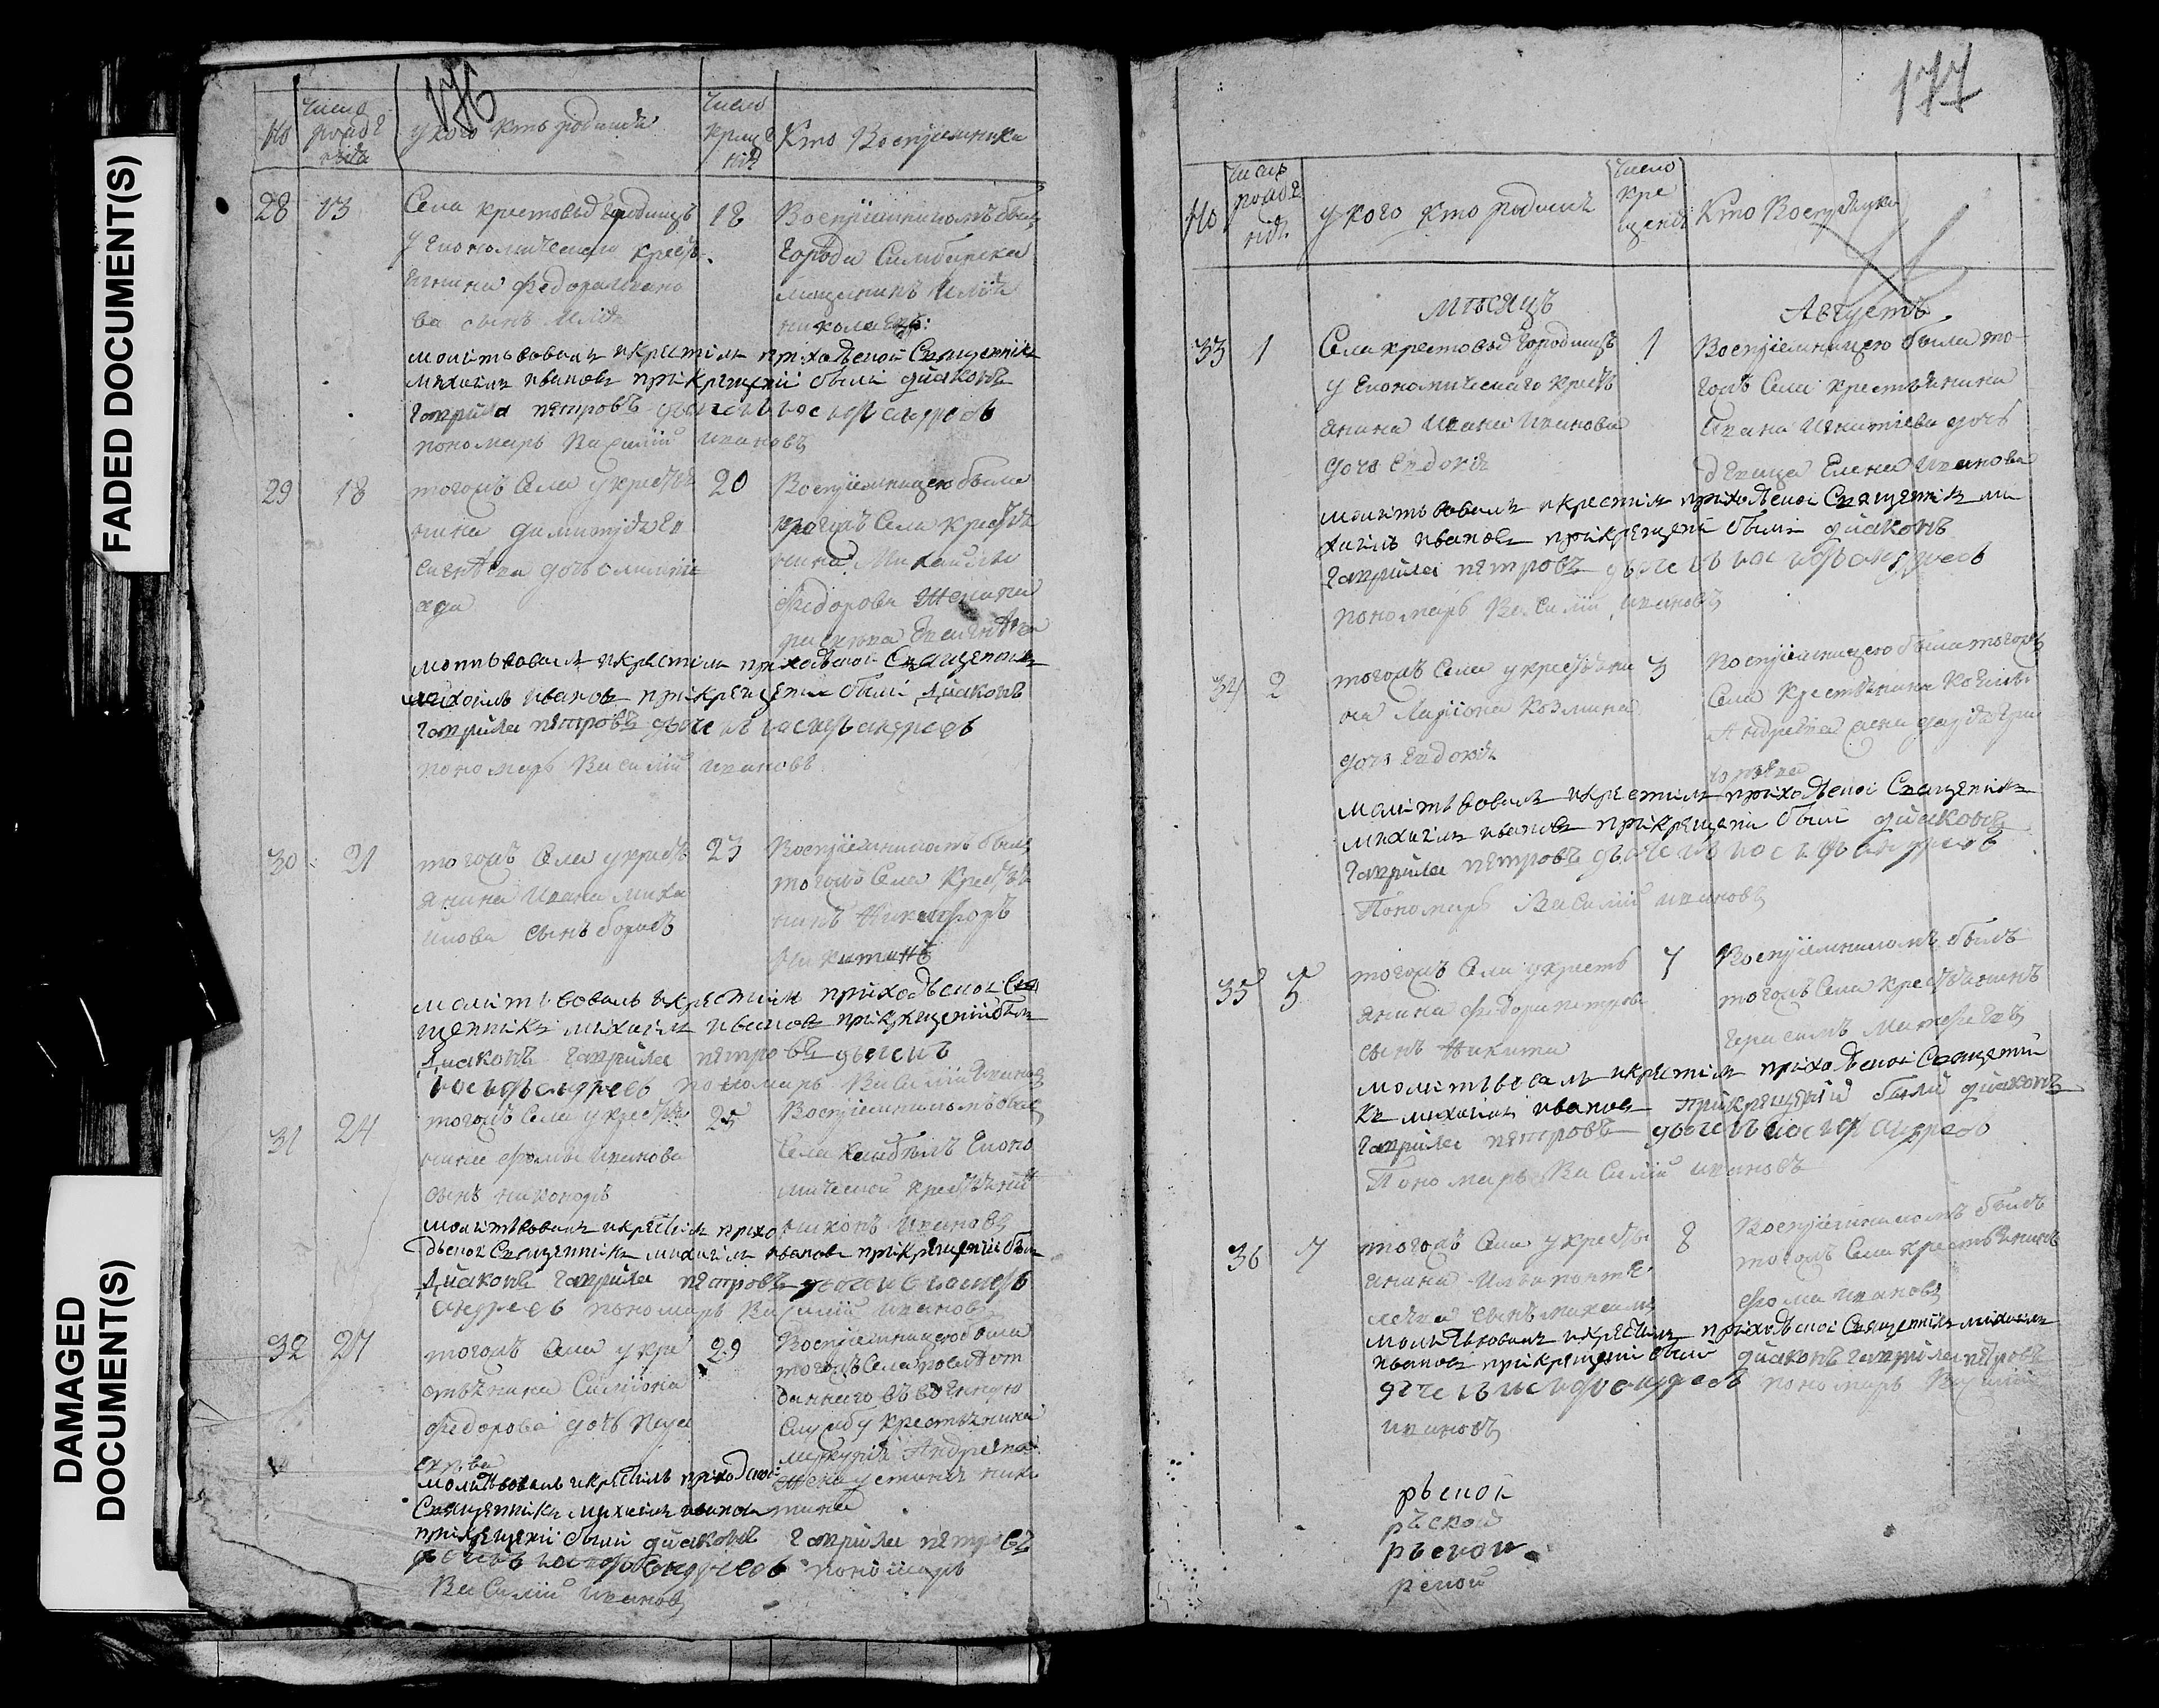 FADED DOCUMENT(S)
DAMAGED
DOCUMENT(S)
176
№
число рождения
у кого кто родился
число крещения
Кто Восприемники
28 13
Села крестовыхъ городищъ
у Економическаго кресть
янина Федора Ивано
ва сынъ Илия
18
Восприемникомъ былъ
города Симбирска
мещанинъ Илия
николаевъ:
молитвовалъ и крестилъ приходской Священникъ
михаилъ ивановъ при крещении были диаконъ
гаврила петровъ дьячекъ иосифъ андреевъ
пономарь Василий ивановъ
29 18
тогожъ Села у крестья
нина димитрия Ев
дочь
20
Восприемницею была
тогожъ Села крестья
нина Михаилы
Федорова жена
молитвовалъ и крестилъ приходской Священникъ
михаилъ ивановъ при крещении были диаконъ
гаврила петровъ дьячекъ иосифъ андреевъ
пономарь Василий ивановъ
30 21
тогожъ Села у кресть
янина Ивана Миха
илова сынъ борисъ
23
Восприемникомъ былъ
тогожъ Села крестья
нинъ Никифоръ
Никитинъ
молитвовалъ и крестилъ приходской Свя
щенникъ михаилъ ивановъ при крещении были
диаконъ гаврила петровъ дьячекъ
иосифъ андреевъ пономарь Василий ивановъ
31 24
тогожъ Села у крестья
нина фомы Иванова
сынъ никоноръ
25
Восприемникомъ былъ
Села Економи
ческой крестьянинъ
никонъ ивановъ
молитвовалъ и крестилъ прихо
дской Священникъ михаилъ ивановъ при крещении были
диаконъ гаврила петровъ дьячекъ иосифъ
андреевъ пономарь Василий ивановъ
32 27
тогожъ Села у кре
стьянина Симиона
Федорова дочь Пара
скева
29
Восприемницею была
тогожъ Села от
даннаго въ военную
Службу крестьянина
меркурия Андреева
жена устинья ники
тина
молитвовалъ и крестилъ приходской
Священникъ михаилъ ивановъ
при крещении были диаконъ гаврила петровъ
дьячекъ иосифъ андреевъ пономарь
Василий ивановъ
177
№
число рождения
у кого кто родился
число крещения
Кто Восприемники
мѣсяцъ Августъ
33 1
Села крестовыхъ городищъ
у Економическаго кресть
янина Ивана Иванова
дочь Евдокия
1
Восприемницею была то
гожъ Села крестьянина
Ивана Игнатиева дочь
девица Елена Иванова
молитвовалъ и крестилъ приходской Священникъ ми
хаилъ ивановъ при крещении были диаконъ
гаврила петровъ дьячекъ иосифъ андреевъ
пономарь Василий ивановъ
34 2
тогожъ Села у крестьяни
на Лариона Козмина
дочь Евдокия
3
Восприемницею была тогожъ
Села Крестьянина
Андреева жена дарья Гри
горьева
молитвовалъ и крестилъ приходской Священникъ
михаилъ ивановъ при крещении были диаконъ
гаврила петровъ дьячекъ иосифъ андреевъ
Пономарь Василий ивановъ
35 5
тогожъ Села у кресть
янина Федора петрова
сынъ Никита
7
Восприемникомъ былъ
тогожъ Села крестьянинъ
герасимъ Матфеевъ
молитвовалъ и крестилъ приходской Священни
къ михаилъ ивановъ при крещении были диаконъ
гаврила петровъ дьячекъ иосифъ андреевъ
Пономарь Василий ивановъ
36 7
тогожъ Села у кресть
янина Ильи панте
леева сынъ михаилъ
8
Восприемникомъ былъ
тогожъ Села крестьянинъ
фома ивановъ
молитвовалъ и крестилъ приходской Священникъ михаилъ
ивановъ при крещении были диаконъ гаврила петровъ
дьячекъ иосифъ андреевъ пономарь Василий
ивановъ